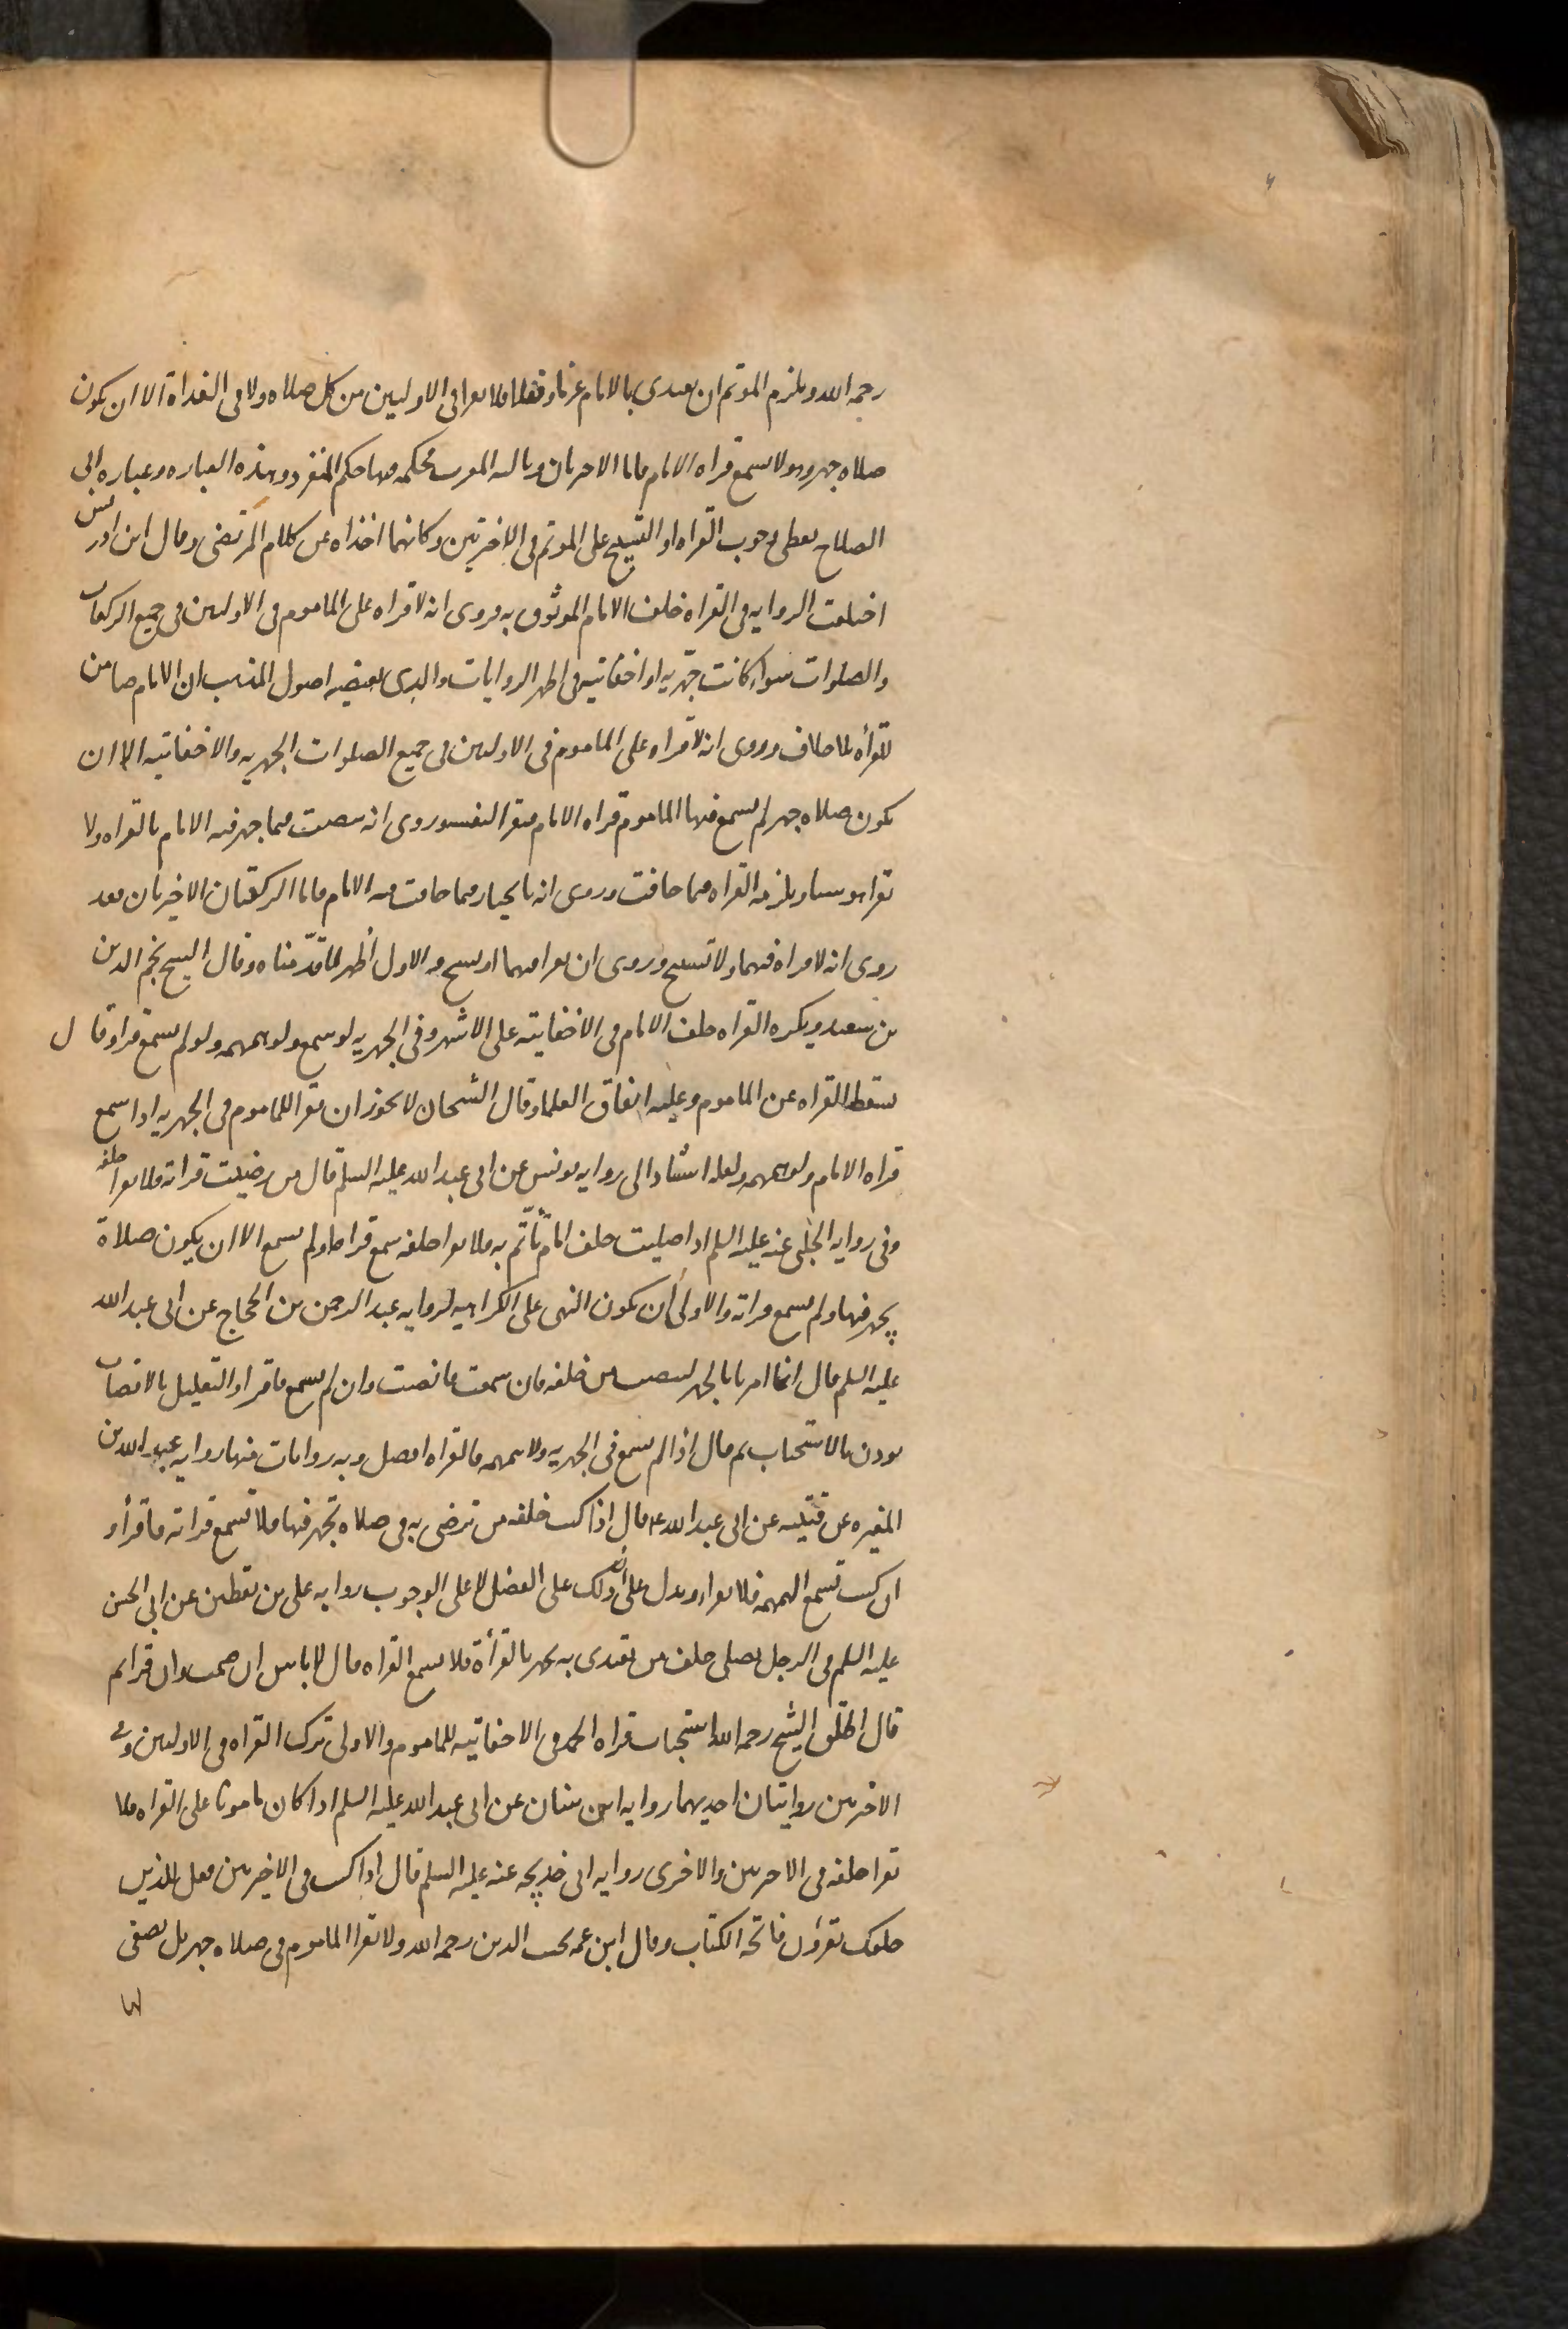 رحمه الله ويلزم الموتم ان يقتدي بالامام عزما وفعلا فلا يقرا في الاوليين من كل صلاه ولا في الغداة الا ان يكون
صلاه جهر وهو لا يسمع قراه الامام فاما الاخريان وثالثه المغرب فحكمه فيها حكم المنفرد وهذه العباره وعباره ابي
الصلاح يعطي وجوب القراه او التسبيح على الموتم في الاخريين وكانهما اخذاه من كلام المرتضى وقال ابن ادريس
اختلفت الروايه في القراه خلف الامام الموثوق به فروى انه لا قراه على الماموم في الاوليين في جميع الركعات
والصلوات سواء كانت جهريه او اخفاتيه وهي اظهر الروايات والذي يقتضيه اصول المذهب ان الامام ضامن
للقرأه بلا خلاف وروى انه لا قراه على الماموم في الاوليين في جميع الصلوات الجهريه والاخفاتيه الا ان
يكون صلاه جهر لم يسمع فيها الماموم قراه الامام فيقرا لنفسه وروى انه ينصت فيما جهر فيه الامام بالقراه ولا
يقرا هو شيئا ويلزمه القراه فيما خافت وروى انه بالخيار فيما خافت فيه الامام فاما الركعتان الاخيرتان فقد
روى انه لا قراه فيهما ولا تسبيح وروى ان يقرا فيهما او يسبح والاول اظهر لما قدّمناه وقال الشيخ نجم الدين
بن سعيد ويكره القراه خلف الامام في الاخفاتيه على الاشهر وفي الجهريه لو سمع ولو همهمه ولو لم يسمع قرا وقال
يسقط القراه عن الماموم وعليه اتفاق العلما وقال الشيخان لا يجوز ان يقرا الماموم في الجهريه اذا سمع
قراه الامام ولو همهمه ولعله استنادا الى روايه يونس عن ابي عبد الله عليه السلم قال من رضيت قراته فلا يقرا خلفه
وفي روايه الحلبي عنه عليه السلم اذا صليت خلف امام تأتم به فلا يقرا خلفه سمع قراه او لم يسمع الا ان يكون صلاة
يجهر فيها ولم يسمع قراته والاولى ان يكون النهي على الكراهيه لروايه عبد الرحمن بن الحجاج عن ابي عبد الله
عليه السلم قال انما امرنا بالجهر لينصت من خلفه فان سمعت فانصت وان لم يسمع فاقرا والتعليل بالانصات
يوذن بالاستحباب ثم قال اذا لم يسمع في الجهريه ولا همهمه فالقراه افضل وبه روايات منها روايه عبد الله بن
المغيره عن قتيبه عن ابي عبد الله ع قال اذا كنت خلف من ترضى به في صلاه يجهر فيها فلا تسمع قراته فاقرأ و
ان كنت تسمع الهمهمه فلا يقرا ويدل على ان ذلك على الفضل لا على الوجوب روايه علي بن يقطين عن ابي الحسن
عليه السلم في الرجل يصلي خلف من يقتدى به يجهر بالقرأة فلا يسمع القراه قال لا باس ان صمت وان قرا ثم
قال اطلق الشيخ رحمه الله استحباب قراه الحمد في الاخفاتيه للماموم والاولى ترك القراه في الاوليين وفي
الاخريين روايتان احديهما روايه ابن سنان عن ابي عبد الله عليه السلم اذا كان مامونا على القراه فلا
تقرا خلفه في الاخريين والاخرى روايه ابي خديجه عنه عليه السلم قال اذا كنت في الاخيرتين فعل للذين
خلفك يقرؤن فاتحة الكتاب وقال ابن عمه نجيب الدين رحمه الله ولا يقرا الماموم في صلاه جهر بل يصغي
لها